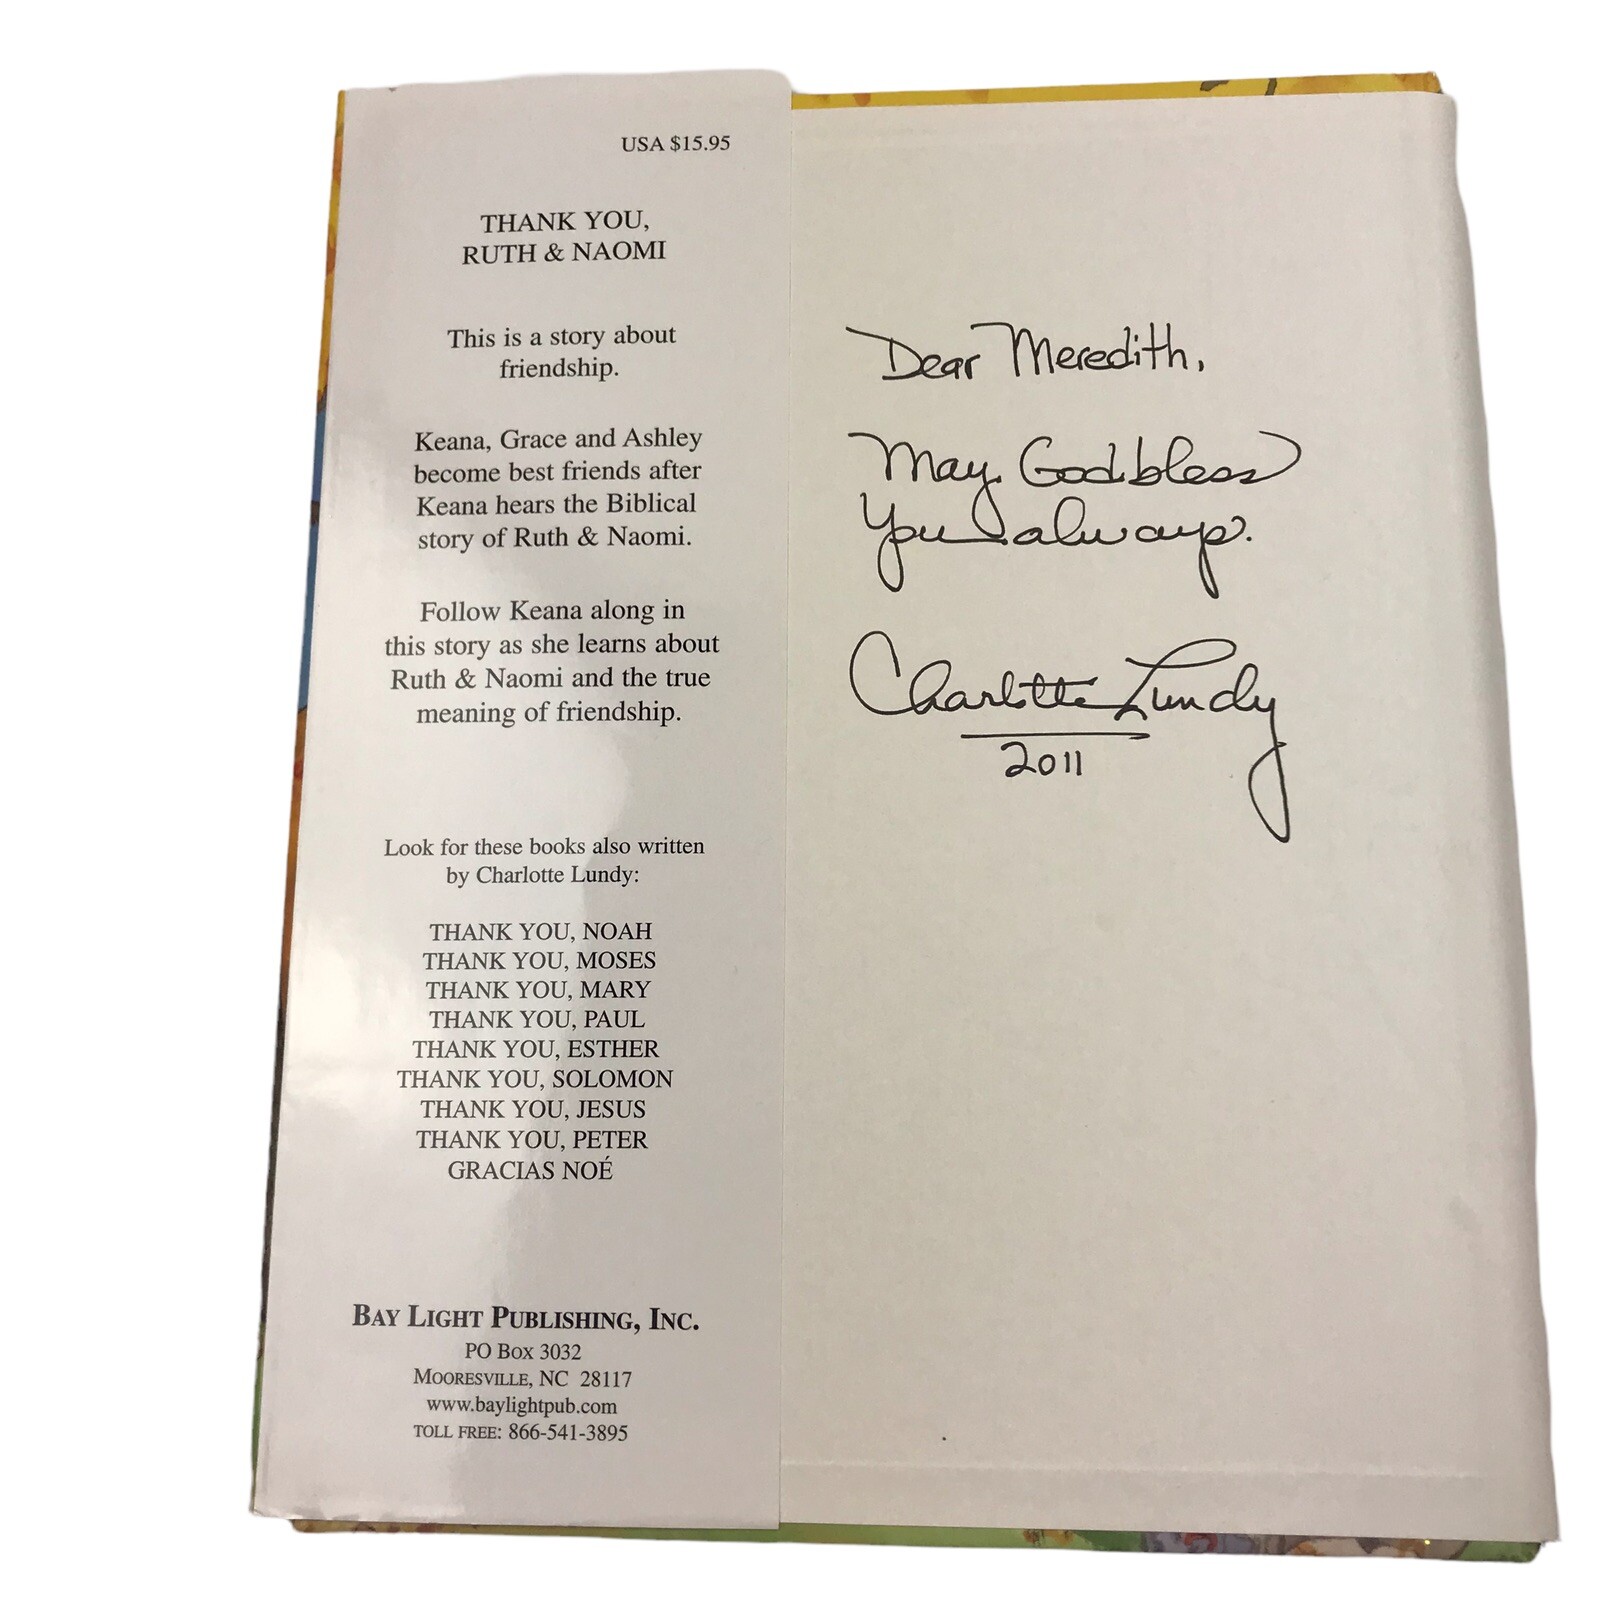 USA $15.95
THANK YOU,
RUTH & NAOMI
This is a story about
friendship.
Keana, Grace and Ashley
become best friends after
Keana hears the Biblical
story of Ruth & Naomi.
Follow Keana along in
this story as she learns about
Ruth & Naomi and the true
meaning of friendship.
Look for these books also written
by Charlotte Lundy:
THANK YOU, NOAH
THANK YOU, MOSES
THANK YOU, MARY
THANK YOU, PAUL
THANK YOU, ESTHER
THANK YOU, SOLOMON
THANK YOU, JESUS
THANK YOU, PETER
GRACIAS NOÉ
BAY LIGHT PUBLISHING, INC.
PO BOX 3032
MOORESVILLE, NC 28117
www.baylightpub.com
TOLL FREE: 866-541-3895
Dear Meredith,
May God bless
You always.
Charlotte Lundy
2011